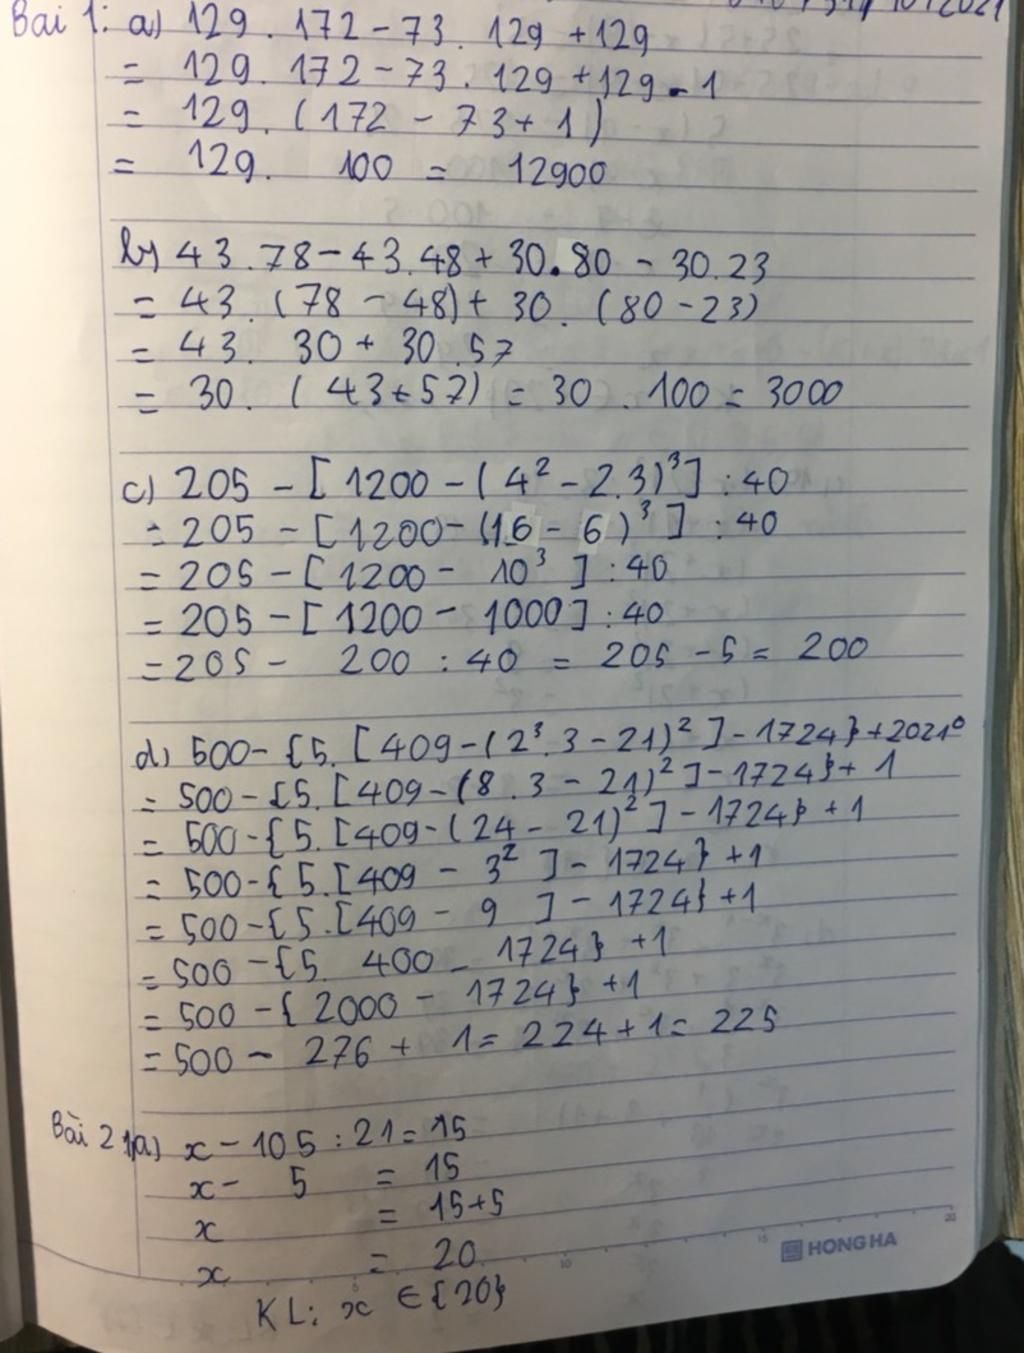 Bài 1: a) 129 . 172 - 73 . 129 + 129
= 129 . 172 - 73 . 129 + 129 . 1
= 129 . (172 - 73 + 1)
= 129 . 100 = 12900
b) 43 . 78 - 43 . 48 + 30 . 80 - 30 . 23
= 43 . (78 - 48) + 30 . (80 - 23)
= 43 . 30 + 30 . 57
= 30 . (43 + 57) = 30 . 100 = 3000
c) 205 - [1200 - (4² - 2.3)³] : 40
= 205 - [1200 - (16 - 6)³] : 40
= 205 - [1200 - 10³] : 40
= 205 - [1200 - 1000] : 40
= 205 - 200 : 40 = 205 - 5 = 200
d) 500 - {5 . [409 - (2³ . 3 - 21)²] - 1724} + 2021⁰
= 500 - {5 . [409 - (8 . 3 - 21)²] - 1724} + 1
= 500 - {5 . [409 - (24 - 21)²] - 1724} + 1
= 500 - {5 . [409 - 3²] - 1724} + 1
= 500 - {5 . [409 - 9] - 1724} + 1
= 500 - {5 . 400 - 1724} + 1
= 500 - {2000 - 1724} + 1
= 500 - 276 + 1 = 224 + 1 = 225
Bài 2 a) x - 105 : 21 = 15
x - 5 = 15
x = 15 + 5
x = 20
KL: x ∈ {20}
HONG HA